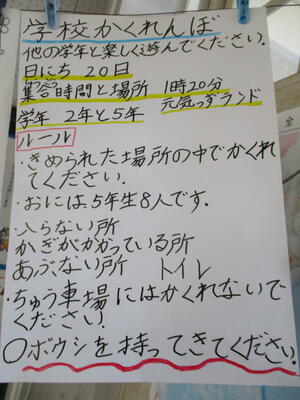 学校かくれんぼ
他の学年と楽しく遊んでください.
日にち 20日
集合時間と場所 1時20分
元気っずランド
学年 2年と5年
ルール
・きめられた場所の中でかくれ
てください.
・おには5年生8人です.
・入らない所
かぎがかかっている所
あぶない所 トイレ
・ちゅう車場にはかくれないで
ください.
○ボウシを持ってきてください.